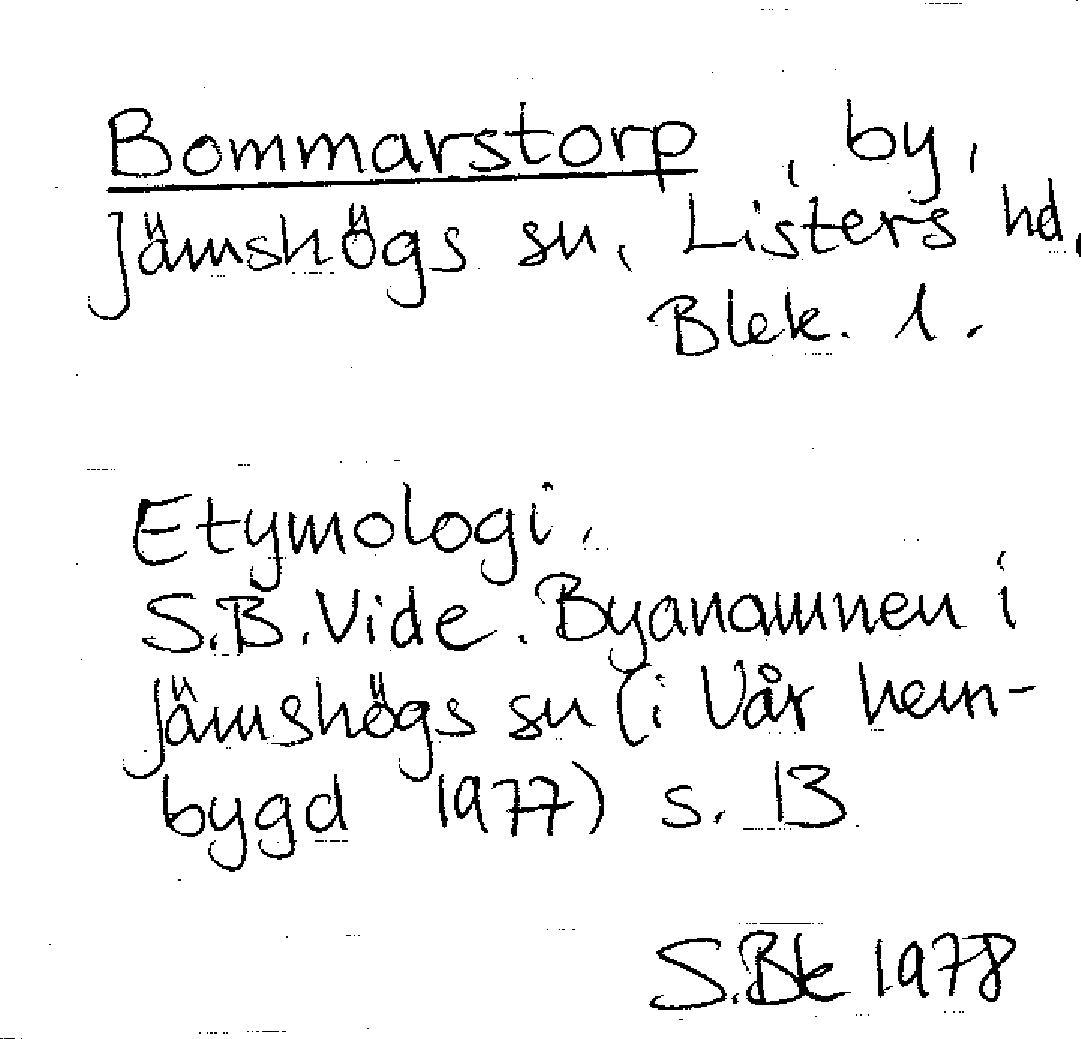 Bommarstorp, by,
Jämshögs sn, Listers hd,
Blek. l.
Etymologi.
S.B. Vide. Byanamnen i
Jämshögs sn (i Vår hem-
bygd 1977) s. 13
S.Bk 1978